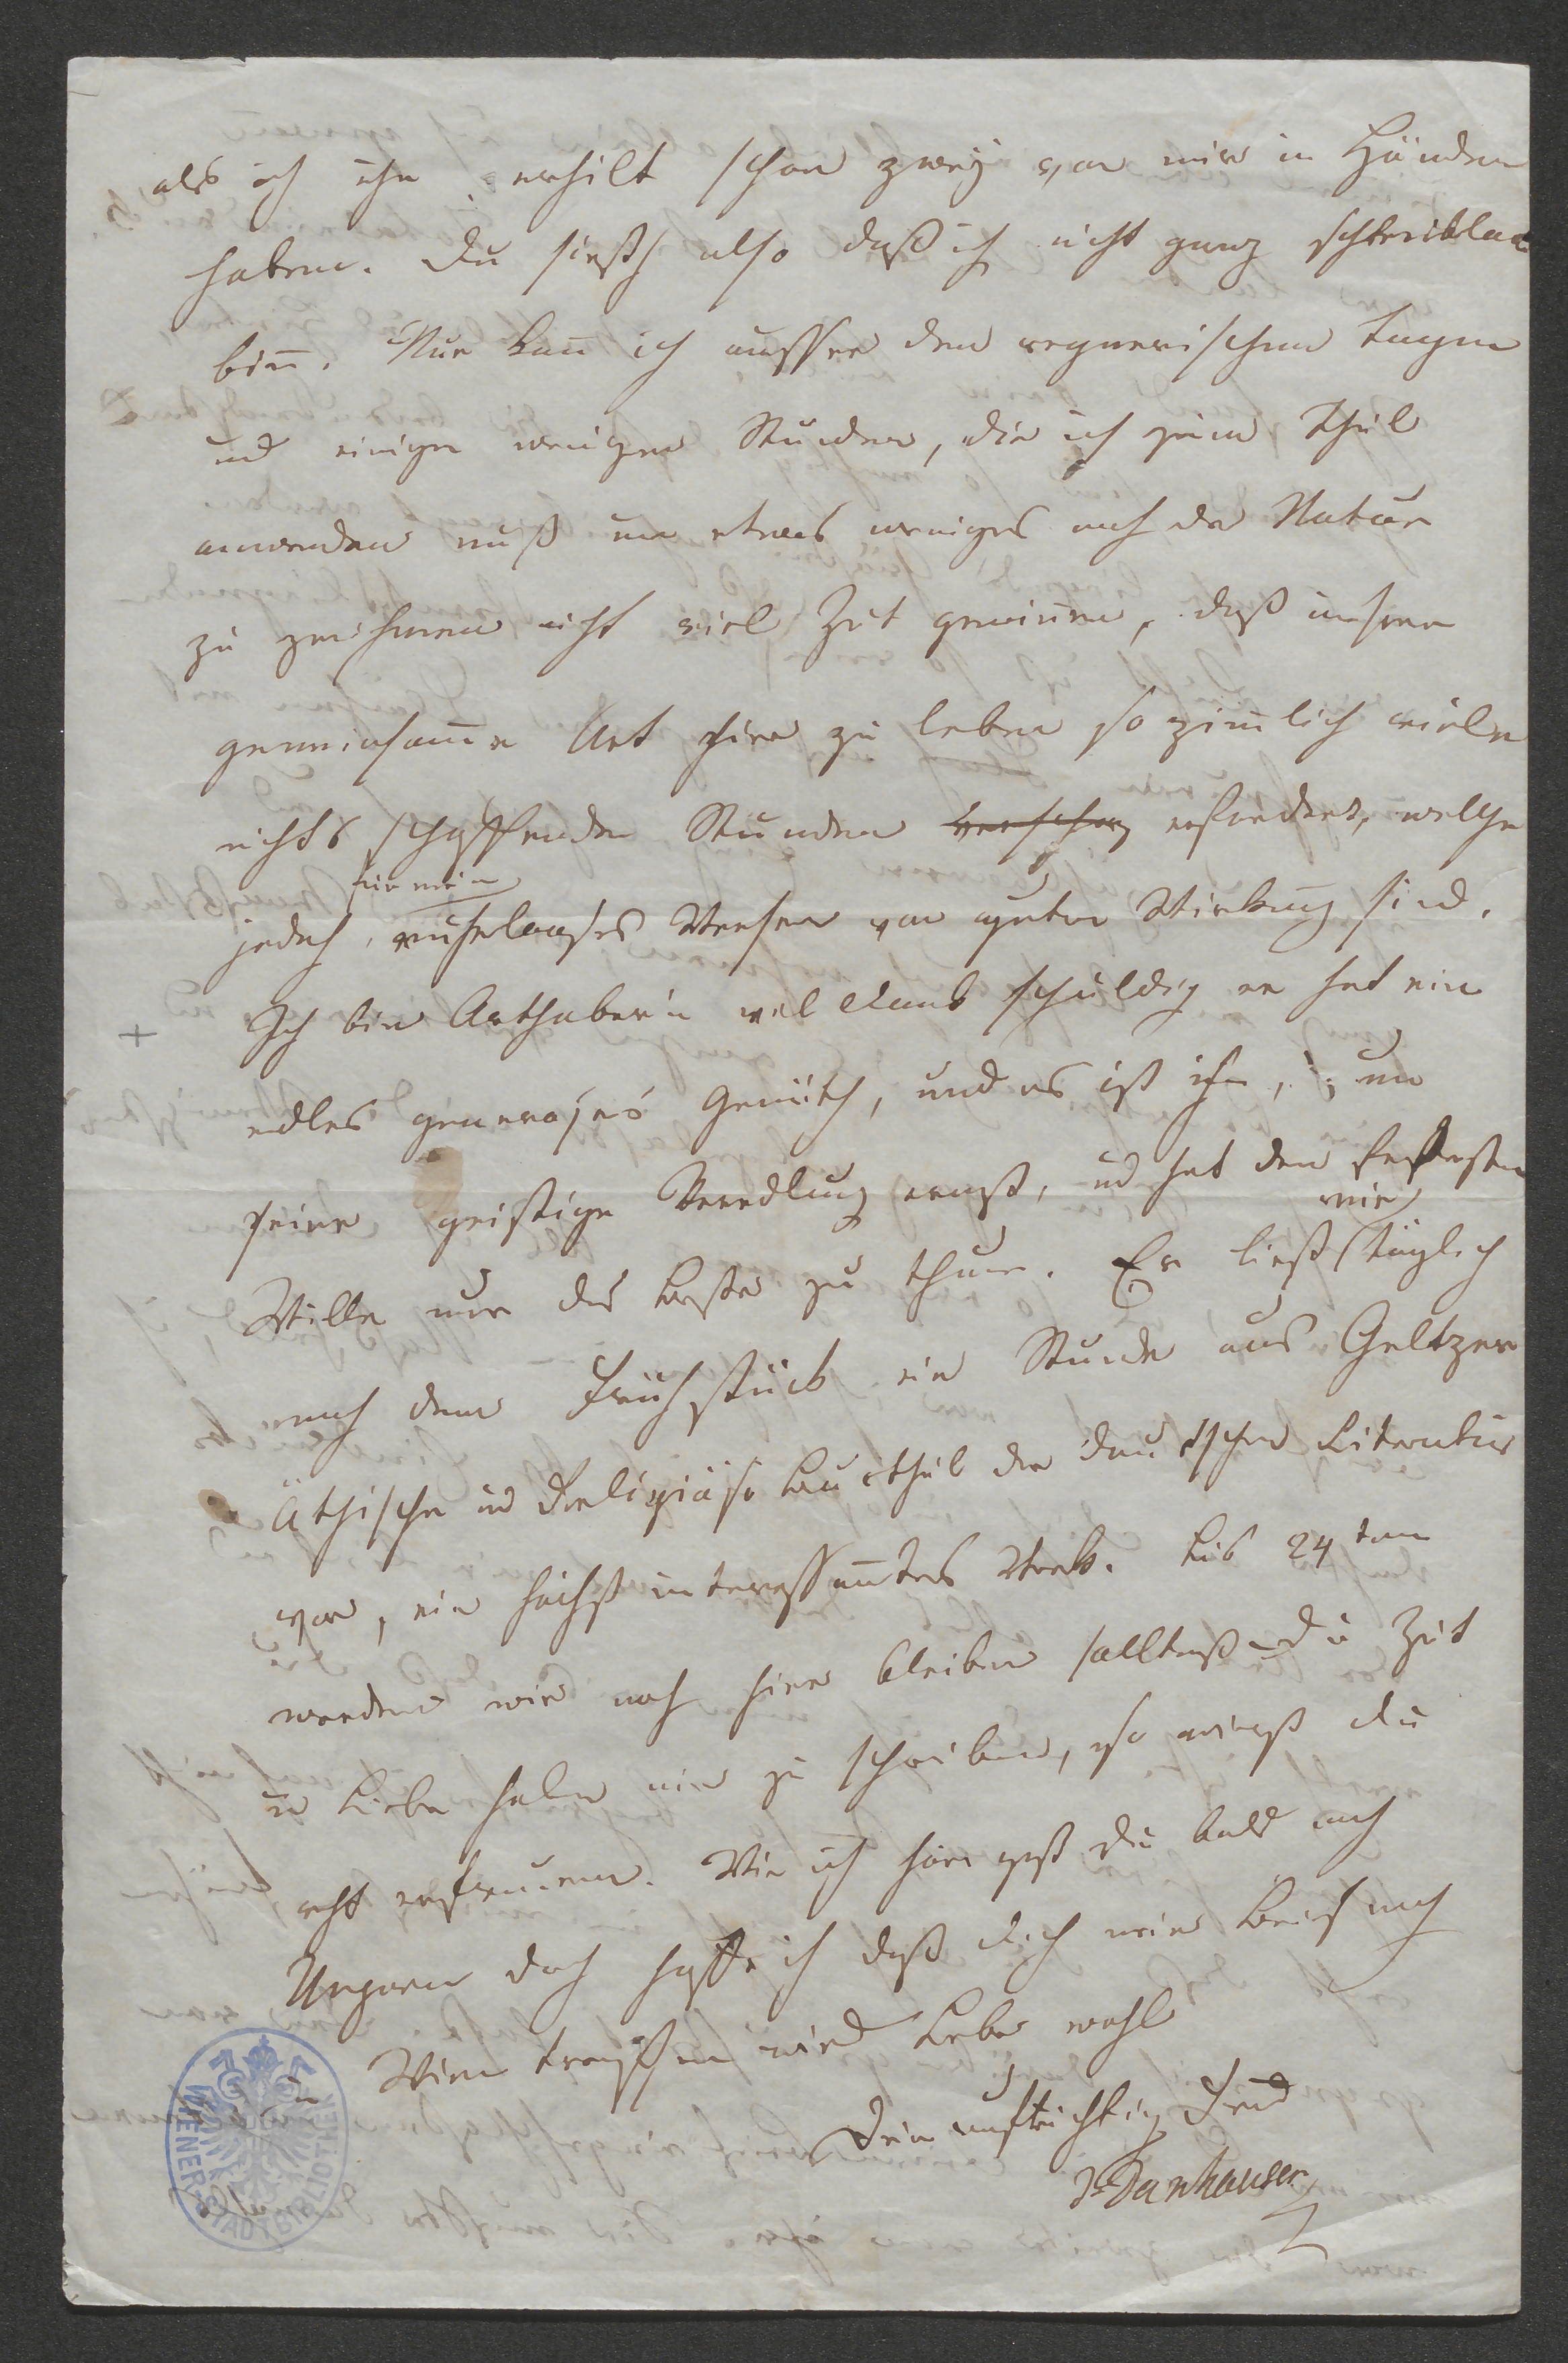 als ich ihn erhilt schon zwey von mir in Händen
haben. Du siehst also daß ich nicht ganz schreiblas
bin̄. Nur kan̄ ich ausser den regnerischen Tagen
und einigen wenigen Stunden, die ich zum Theil
anwenden muß um etwas weniges nach der Natur
zu zeichnen nicht viel Zeit gewin̄en, daß unsere
gemeinsam̄e Art hier zu leben so zim̄lich viele
nichts schaffenden Stunden erfordert, welche
für mein
jedoch ruhelooses Wesen von guter Wirkung sind.
Ich bin Arthaber'n viel Dank schuldig er hat ein
edles generoses Gemüth, und es ist ihm, um
seine geistige Veredlung ernst, ud hat den festesten
mir
Wille nur das beste zu thun. Er ließt täglich
nach dem Frühstück ein Stunde aus Geltzer
Äthische ud Religiöse Leurtheil der deutschen Literatur
vor, ein höchst interessan̄tes Werk. Bis 24ten
werden wir noch hier bleiben salltest Du Zeit
u Liebe haben mir zu schreiben, so wirst du
recht erfreuen. Wie ich höre gehst Du bald nach
Ungarn doch hoffe ich daß dich mein Brief noch
in Wien treffen wird Lebe wohl
Dein aufrichtig Freud
J. Danhauser
WIENER STADTBIBLIOTHEK